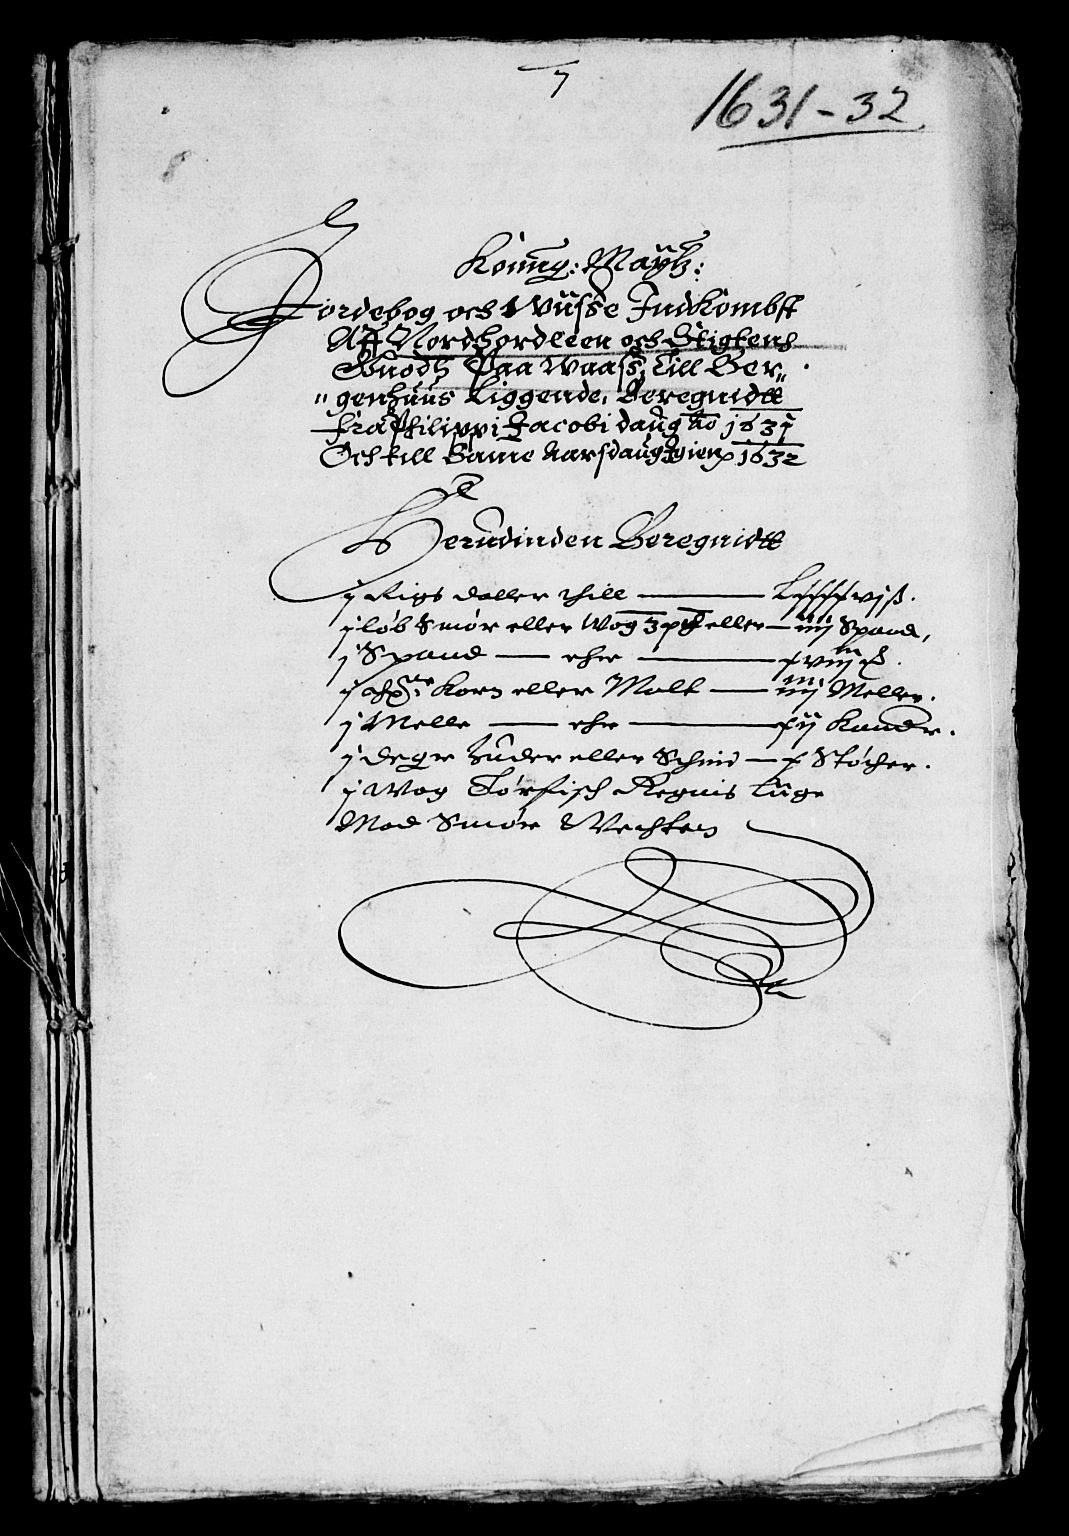 7
1631-32
Konng: Maytz:
Jordebog och Wiisse Indkombst
Aff Nordhordleen och Stigtens
Guodtz Paa Waass, Till Ber„
„genhuus Liggende, Beregnidtt
fra Philippi Jacobi daug Ao 1631
Och till Same Aarsdaug Igien 1632
Herudinden Beregnidtt
j Rigs daller thill — ß.
j løb Smør eller Wog 3 pd eller — iij Spand,
j Spand — ehr —
j Korn eller Malt — iiij Meller.
j Melle — ehr — xij Kander.
j deger huder eller Schin — x Støcher.
j Wog Tørfisch Regnis Liige
Mod Smør Wechten